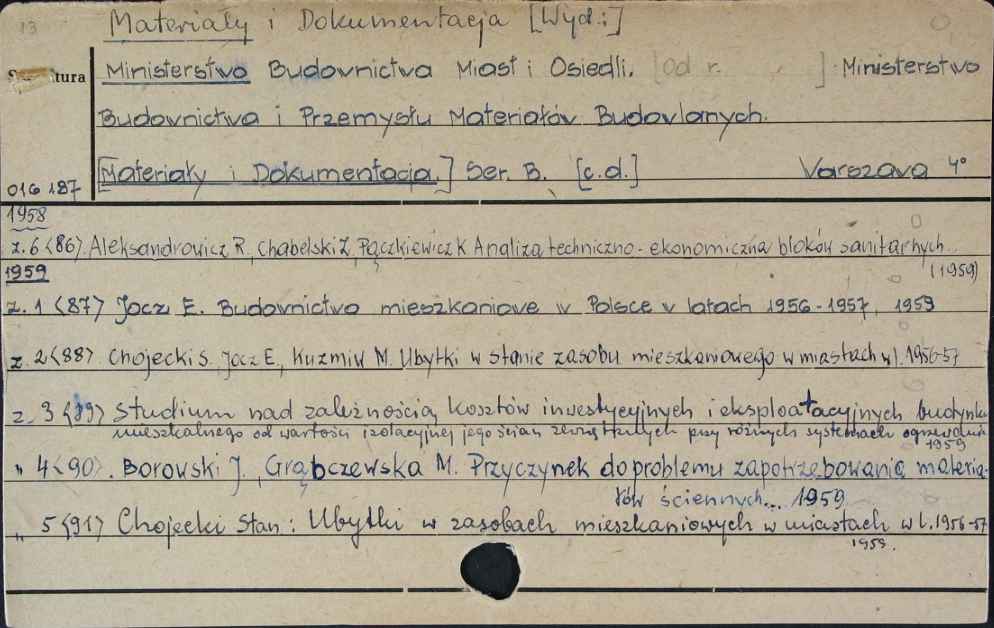 13
Materiały i Dokumentacja [Wyd.:]
tura Ministerstwo Budownictwa Miast i Osiedli. [od r. ] Ministerstwo
Budownictwa i Przemysłu Materiałów Budowlanych.
016 187 [Materiały i Dokumentacja.] Ser. B. [c.d.] Warszawa 4°
1958
z. 6 <86>. Aleksandrowicz R, Chabelski Z, Pączkiewicz K Analiza techniczno - ekonomiczna bloków sanitarnych..
(1959)
1959
z. 1 <87> Jocz E. Budownictwo mieszkaniowe w Polsce w latach 1956-1957, 1959
z. 2 <88> Chojecki S. Jocz E., Kuzmin M. Ubytki w stanie zasobu mieszkaniowego w miastach w l. 1956-57
z. 3 <89> Studium nad zależnością kosztów inwestycyjnych i eksploatacyjnych budynku
mieszkalnego od wartości izolacyjnej jego ścian zewnętrznych przy różnych systemach ogrzewania
1959
" 4 <90>. Borowski J., Grąbczewska M. Przyczynek do problemu zapotrzebowania materia-
łów ściennych... 1959
" 5 <91> Chojecki Stan: Ubytki w zasobach mieszkaniowych w miastach w l. 1956-57
1959.